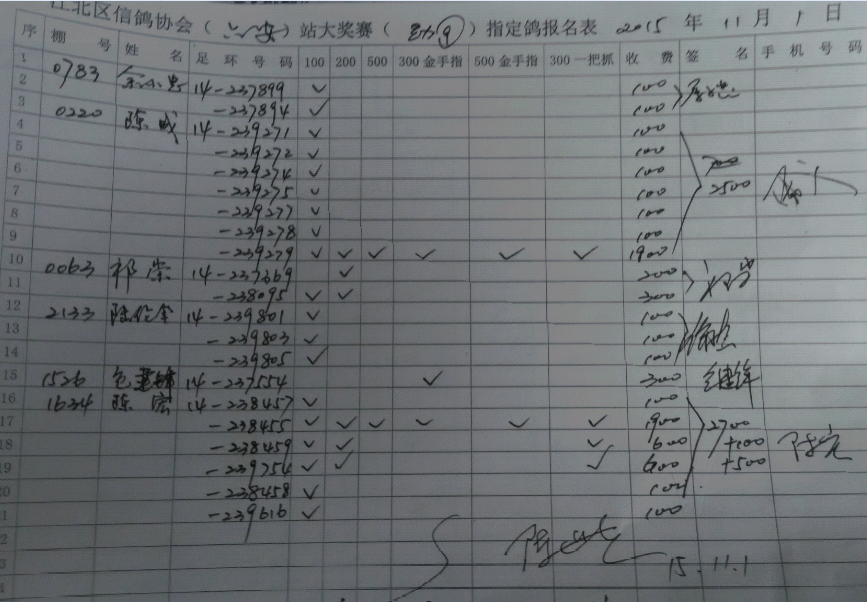 江北区信鸽协会（六安）站大奖赛（ ）指定鸽报名表 2015 年 11 月 1 日
序 棚号 姓名 足环号码 100 200 500 300金手指 500金手指 300一把抓 收费 签名 手机号码
1 0783 14-237899 ✓ 100
2 -237894 ✓ 100
3 0220 陈威 14-239271 ✓ 100
4 -239272 ✓ 100
5 -239274 ✓ 100
6 -239275 ✓ 100 2500
7 -239277 ✓ 100
8 -239278 ✓ 100
9 -239279 ✓ ✓ ✓ ✓ ✓ ✓ 1900
10 0063 祁崇 14-237369 ✓ 200
11 -238095 ✓ ✓ 300
12 2133 14-239801 ✓ 100
13 -239803 ✓ 100
14 -239805 ✓ 100
15 1526 14-237554 ✓ 300
16 1634 陈宏 14-238457 ✓ 100
17 -238455 ✓ ✓ ✓ ✓ ✓ ✓ 1900 2700
18 -238459 ✓ ✓ ✓ 600 +100
19 -239754 ✓ ✓ ✓ 600 +500
20 -238458 ✓ 100
21 -239616 ✓ 100
15.11.1